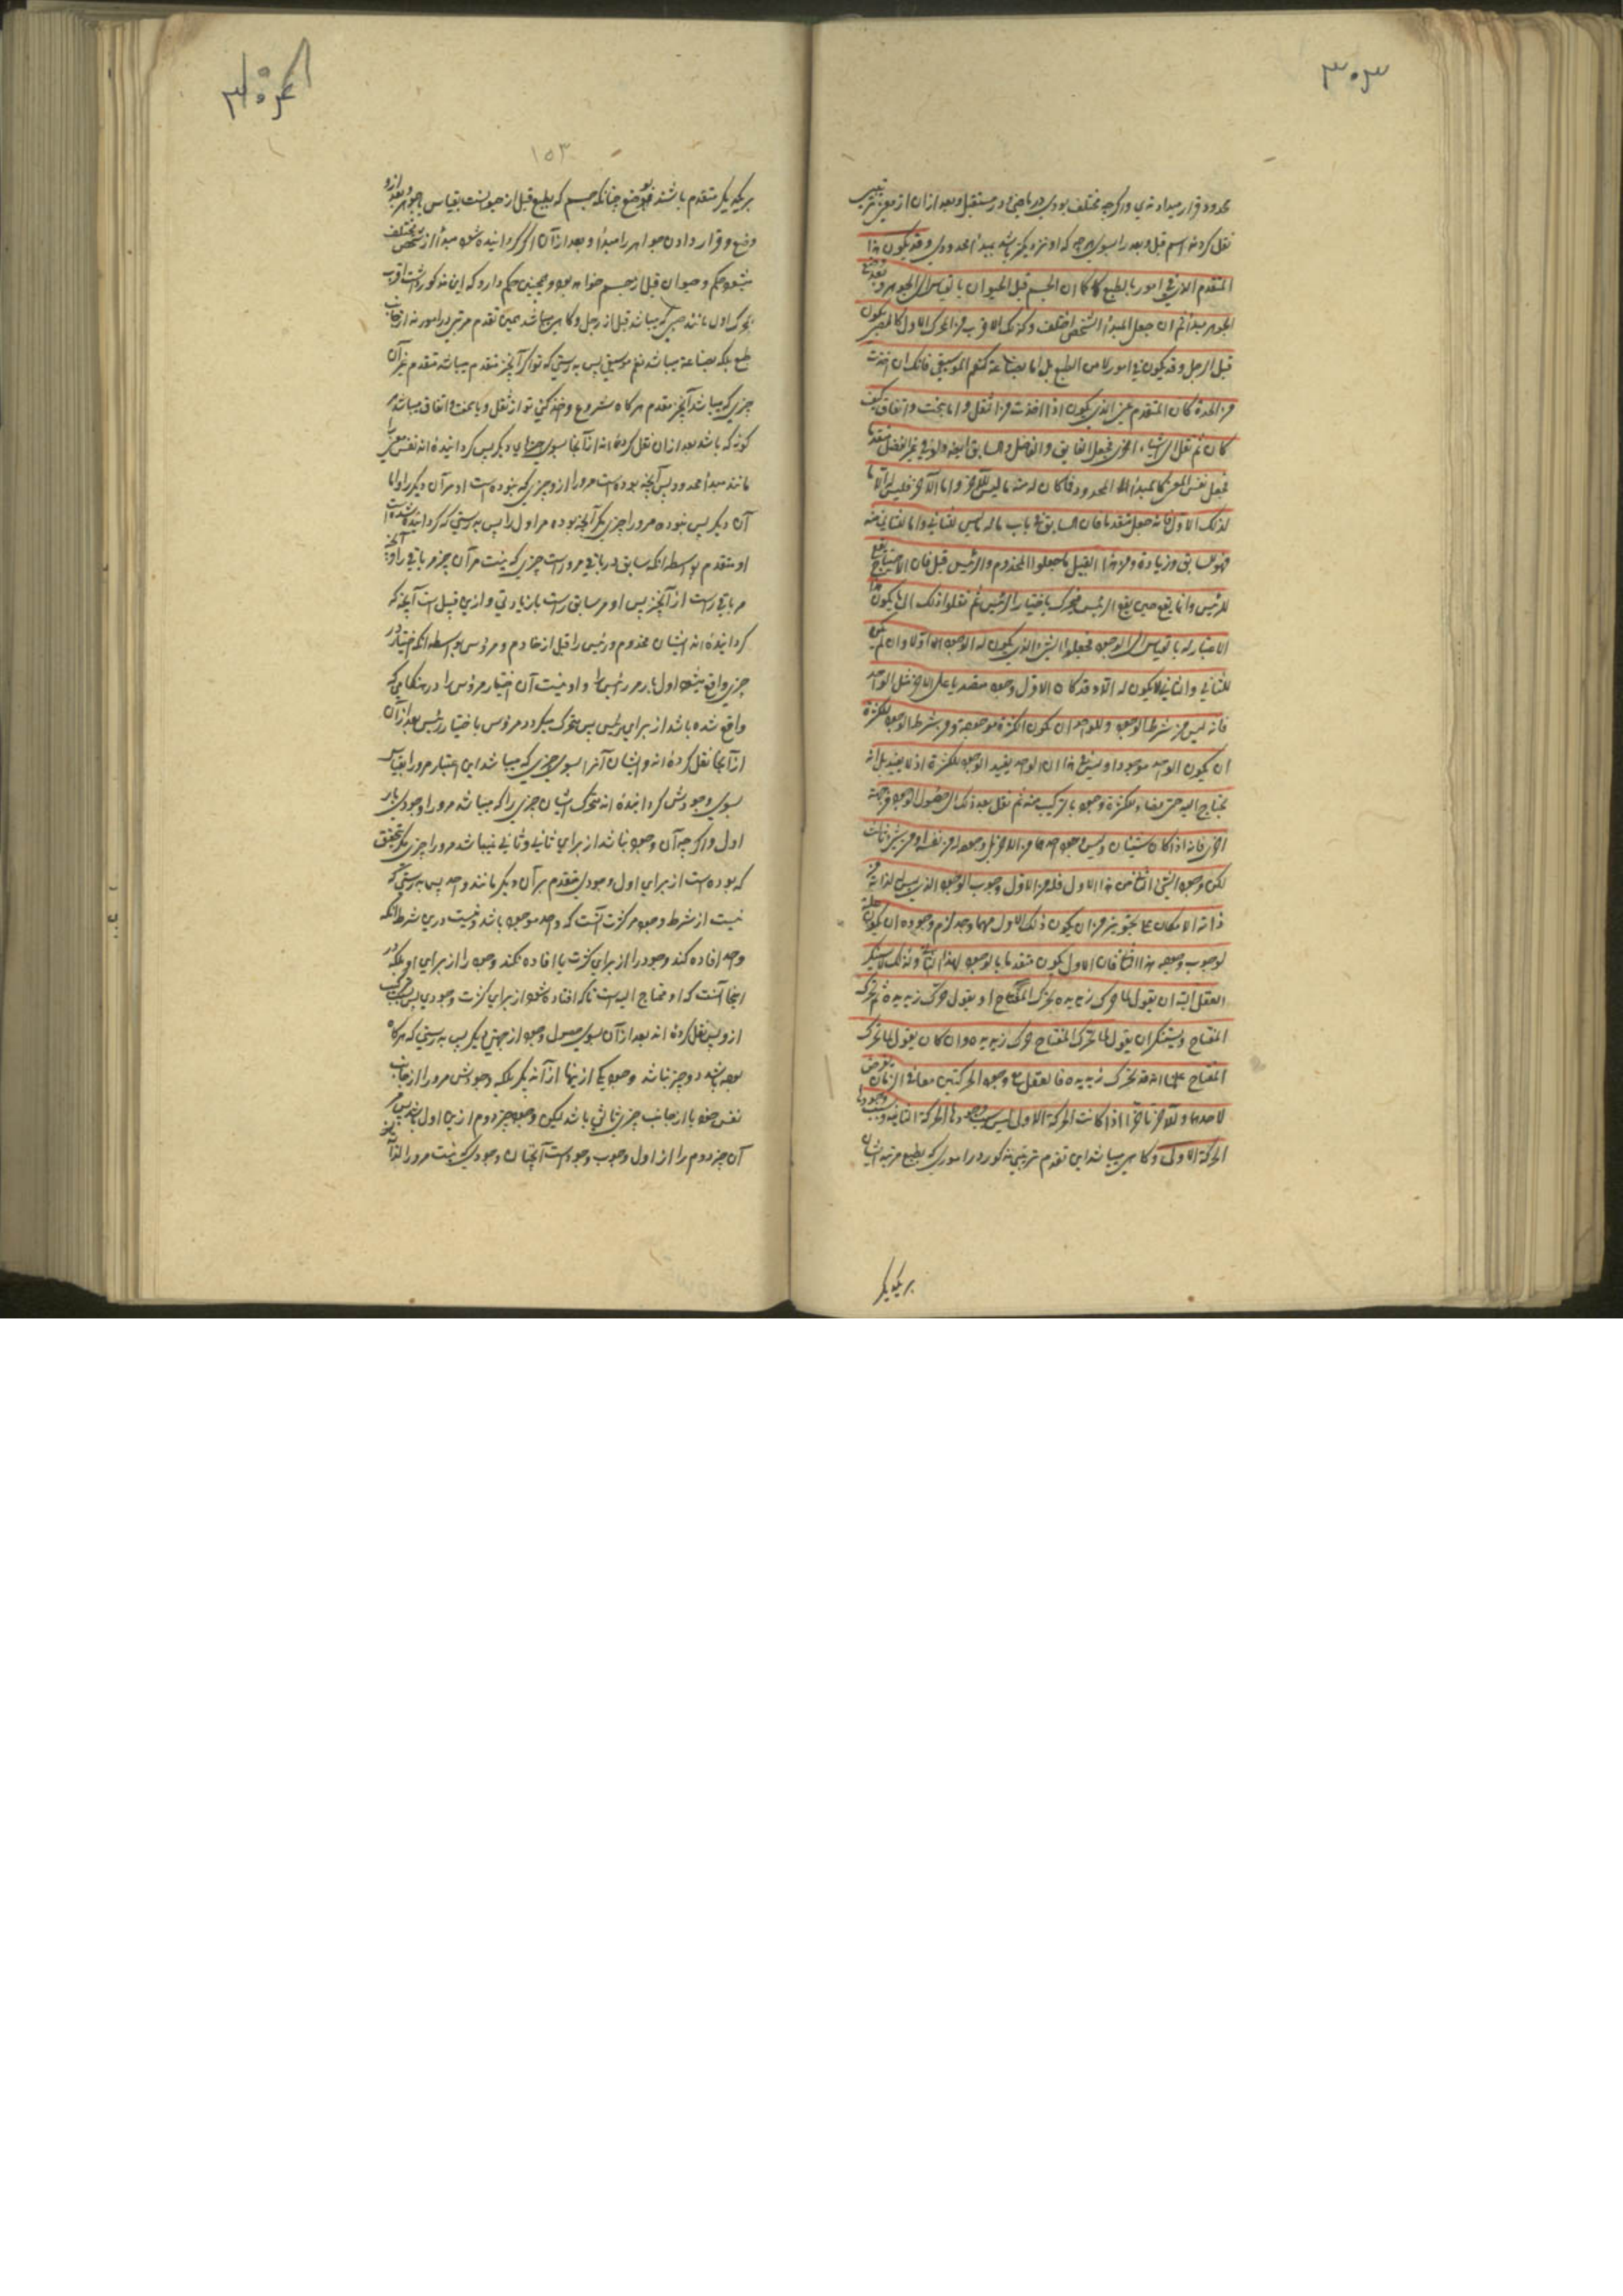 ٣٠٣
محدود قرار میداده‌ی واکرچه مختلف بودی در ماضی و در مستقبل و بعد ازان از معنی ترتیب
نقل کردند اسم قبل و بعد را بسوی هرچه که او نزدیکتر باشد بمبدأ محدودی وقد یکون هذا
المتقدم الاذنی امور بالطبع کما ان الجسم قبل الحیوان بالقیاس الی الجوهر و وضع
الجوهر مبدأ ثم ان جعل المبدأ الشخص اختلف وکذلک الاقرب من المحرک الاول کالصبی یکون
قبل الرجل وقد یکون فی امور لا من الطبع بل اما بصناعة کنغم الموسیقی فانک ان اخذت
من الحدة کان المتقدم غیر الذی یکون اذا اخذت من الثقل واما ببخت واتفاق کیف
کان ثم نقل الی اشیاء اخری فجعل الفایق والفاضل والسابق ایضا ولو فی غیر الفضل متقدما
فجعل نفس المعنی کالمبدأ المحدود فما کان له منه ما لیس للآخر واما الآخر فلیس له الا ما
لذلک الاول فانه جعل متقدما فان السابق فی باب ما له ما لیس للثانی وما للثانی منه
فهو للسابق وزیادة ومن هذا القبیل ما جعلوا المخدوم والرئیس قبل فان الاختیار یقع
للرئیس وانما یقع حین یقع للرئیس فیتحرک باختیار الرئیس ثم نقلوا ذلک الی ما یکون هذا
الاعتبار له بالقیاس الی الوجود فجعلوا الشیء الذی یکون له الوجود اولا وان لم یکن
للثانی والثانی لا یکون له الا وقد کان للاول وجود متقدما علی الآخر مثل الواحد
فانه لیس من شرط الوجود للواحد ان یکون الکثرة موجودة ومن شرط الوجود للکثرة
ان یکون الواحد موجودا ولیس فی هذا ان الواحد یفید الوجود للکثرة او لا یفید بل انه
یحتاج الیه حتی یفاد للکثرة وجود بالترکیب منه ثم نقل بعد ذلک الی حصول الوجود من جهة
اخری فانه اذا کان شیئان ولیس وجود احدهما من الآخر بل وجوده له من نفسه او من شیء ثالث
لکن وجود الثانی من هذا الاول فله من الاول وجوب الوجود الذی لیس له لذاته من
ذاته الامکان علی تجویز من ان یکون ذلک الاول مهما وجد لزم وجوده ان یکون علة
لوجوب وجود هذا الثانی فان الاول یکون متقدما بالوجود لهذا الثانی ولذلک لا یستنکر
العقل البتة ان یقول لما حرک زید یده تحرک المفتاح او یقول حرک زید یده ثم تحرک
المفتاح ویستنکر ان یقول لما تحرک المفتاح حرک زید یده وان کان یقول لما تحرک
المفتاح علمنا انه قد تحرک زید یده فالعقل مع وجود الحرکتین معا فی الزمان یفرض
لاحدهما تقدما وللآخر تاخرا اذا کانت الحرکة الاولی لیس سبب وجودها الحرکة الثانیة وسبب وجودها
الحرکة الاولی وکاهی میباشد این تقدم ترتیبی مذکور در اموری که بطبع مرتبه ایشان
بریکدیکر
٣٠٤
١٥٣
بریکدیکر متقدم باشند چنانکه جسم که بطبع قبل از حیوانست بقیاس بجوهر
وضع وقرار دادن جواهر را مبدأ و بعد ازان اکر کردانیده شود مبدأ از شخص مختلف
میشود حکم و حیوان قبل از جسم خواهد بود وهمچنین حکم دارد که این مذکور شد اقرب
بمحرک اول مانند صبی که میباشد قبل از رجل وکاهی میباشد همین تقدم مرتبی در امور نه از جانب
طبع بلکه بصناعة میباشد نغم موسیقی پس بدرستی که تو اکر آنچیز متقدم میباشد متقدم غیر آن
چیزی که میباشد آنچیز مقدم هرکاه شروع و اخذ کنی تو از ثقل و یا ببخت و اتفاق میباشد هر
کونه که باشد بعد ازان نقل کرده‌اند از آنجا بسوی چیزهای دیکر پس کردانیده‌اند نفس معنی
مانند مبدأ محدود پس آنچه بوده است مر او را از و چیزی که نبوده است او مر آن دیکر را و اما
آن دیکر پس نبوده مر او را چیزی مکر آنچه بوده مر اول را پس بدرستی که کردانیده شده است
او متقدم بواسطه آنکه سابق در باقی مر او راست چیزی که نیست مر آن چیز مر باقی را و آنچه
مر باقی راست از آنچیز پس او مر سابق راست با زیادتی و ازین قبیل است آنچه که
کردانیده‌اند ایشان مخدوم و رئیس را قبل از خادم و مرؤس بواسطه آنکه اختیار در
چیزی واقع میشود اول بار مر رئیس را و او نیست آن اختیار مرؤس را در هنکامی که
واقع شده باشد از برای رئیس پس متحرک میکردد مرؤس باختیار رئیس بعد ازان
از آنجا نقل کرده‌اند و ایشان آنرا بسوی چیزی که میباشد این اعتبار مر او را بقیاس
بسوی وجودش کردانیده‌اند متحرک ایشان چیزی را که میباشد مر او را وجودی بار
اول و اکرچه آن وجود نباشد از برای ثانی و ثانی نمیباشد مر او را چیزی مکر بتحقیق
که بوده است از برای اول وجودی متقدم بر آن دیکر مانند واحد پس بدرستی که
نیست از شرط وجود مر کثرت آنست که واحد موجود باشد و نیست درین شرط آنکه
واحد افاده کند وجود را از برای کثرت یا افاده نکند وجود را از برای او بلکه در
اینجا آنست که او محتاج الیه است تا که افاده شود از برای کثرت وجودی بسبب ترکیب
از و پس نقل کرده‌اند بعد ازان بسوی حصول وجود از جهتی دیکر پس بدرستی که هرکاه
بوده باشد دو چیز نباشد وجود یکی از اینها از آن دیکر بلکه وجودش مر او را از جانب
نفس خود یا از جانب چیزی ثالثی باشد لیکن وجود چیز دوم ازین اول باشد پس مر
آن چیز دوم را از اول وجوب وجود است آنچنان وجودی که نیست مر او را لذاته